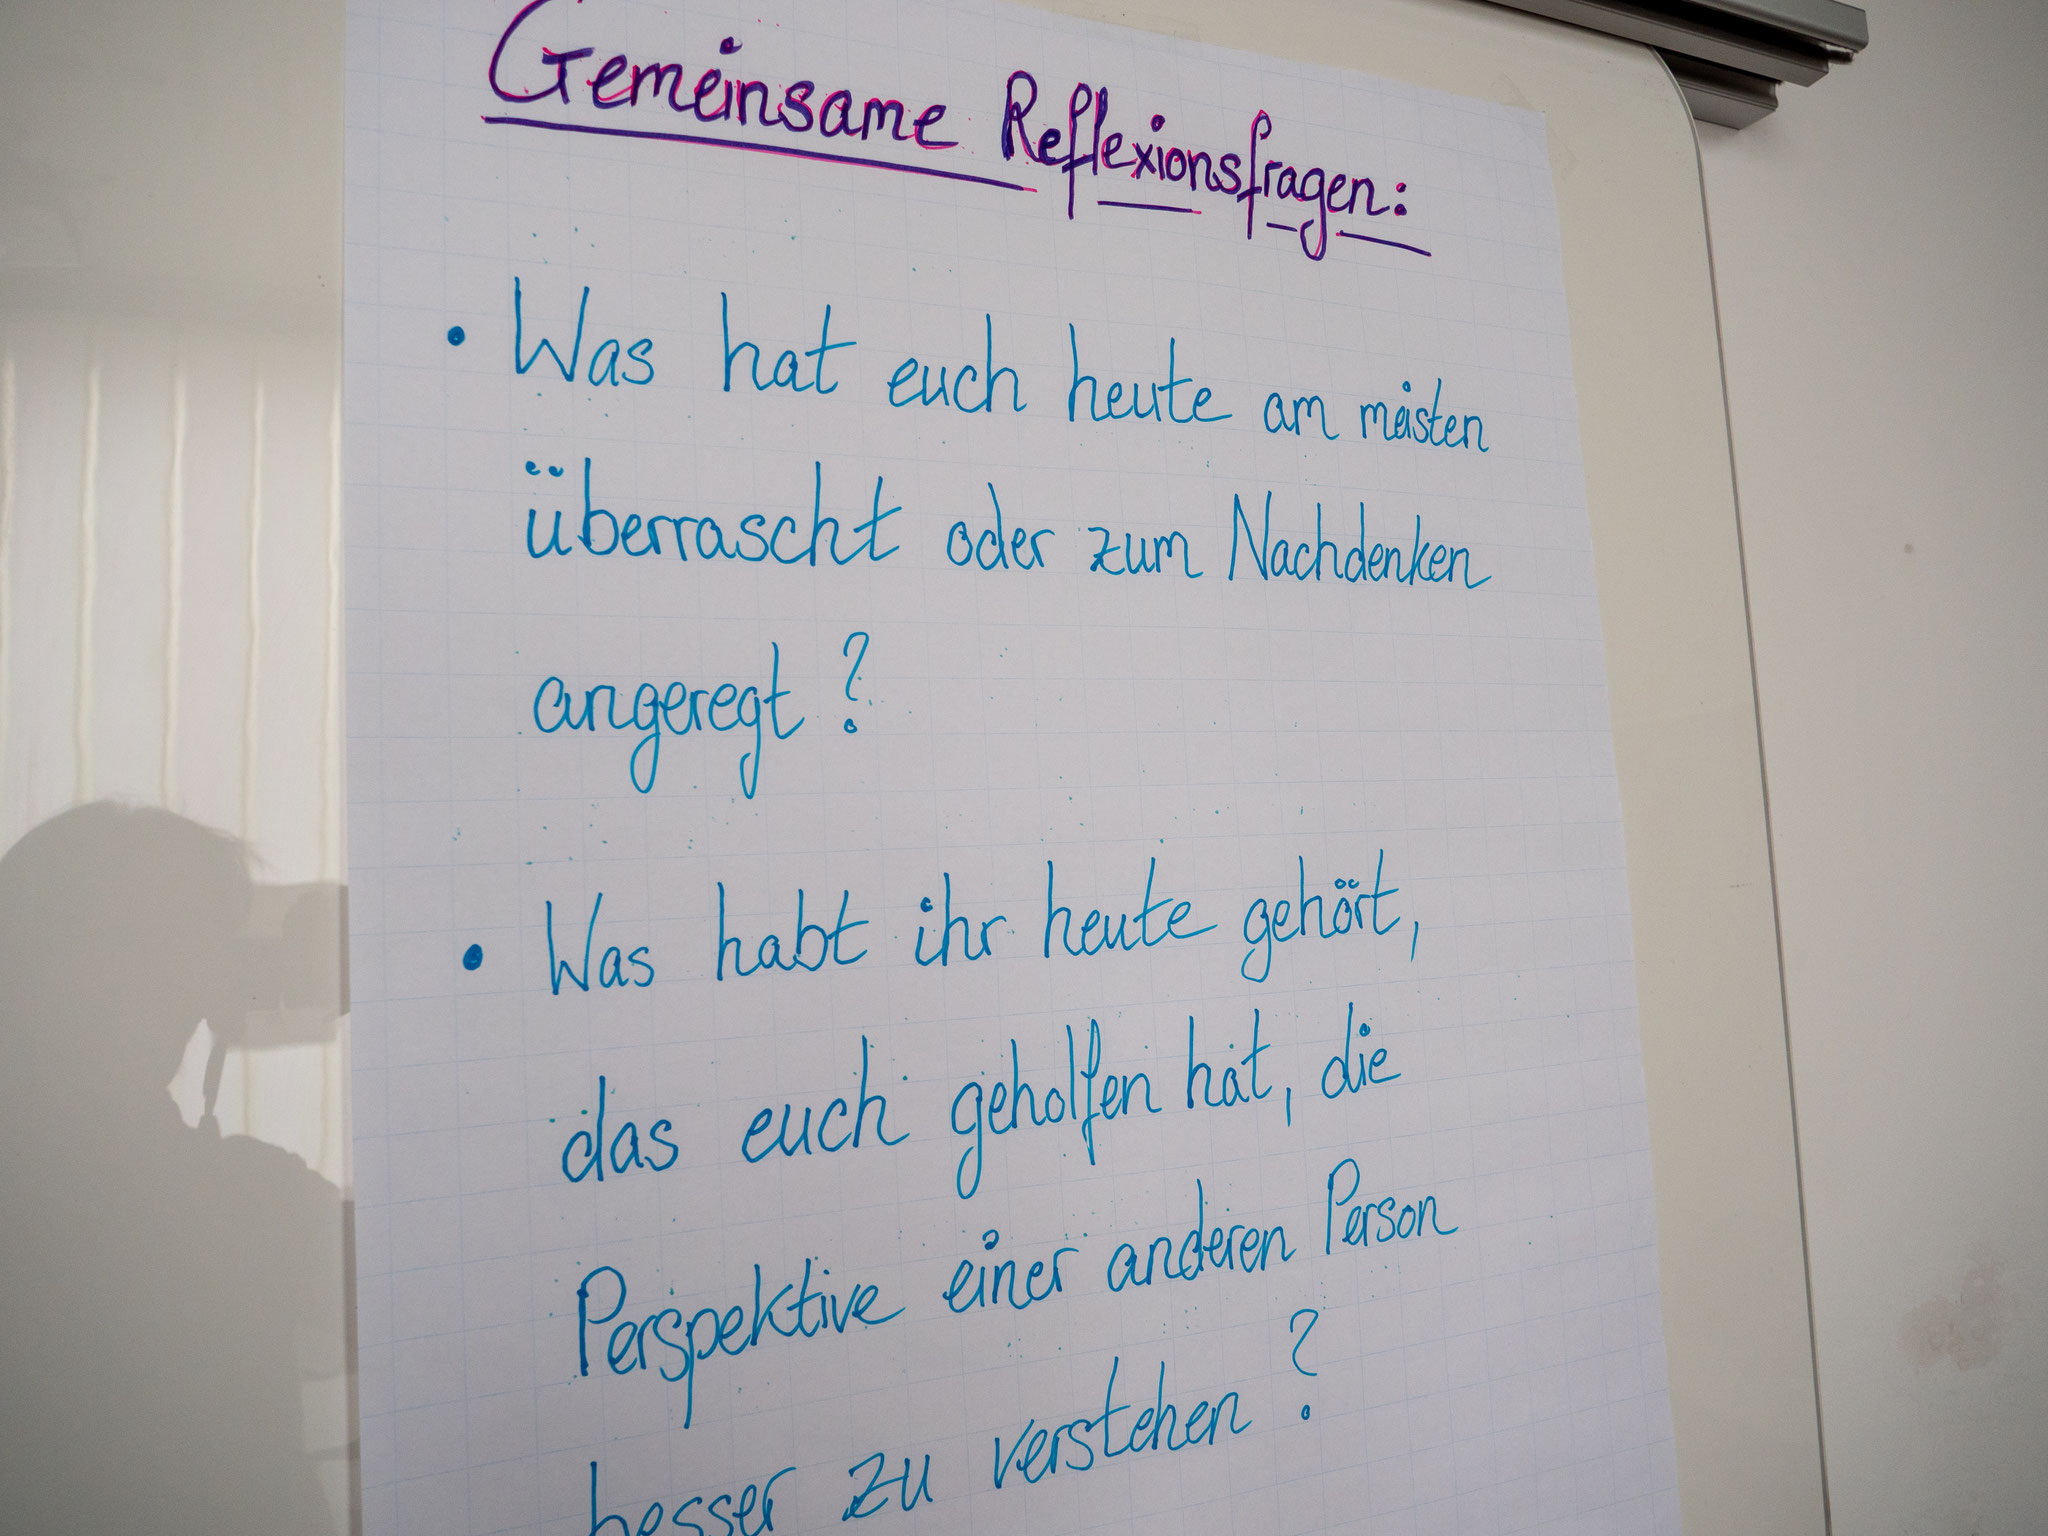 Gemeinsame Reflexionsfragen:
• Was hat euch heute am meisten
überrascht oder zum Nachdenken
angeregt?
• Was habt ihr heute gehört,
das euch geholfen hat, die
Perspektive einer anderen Person
besser zu verstehen?